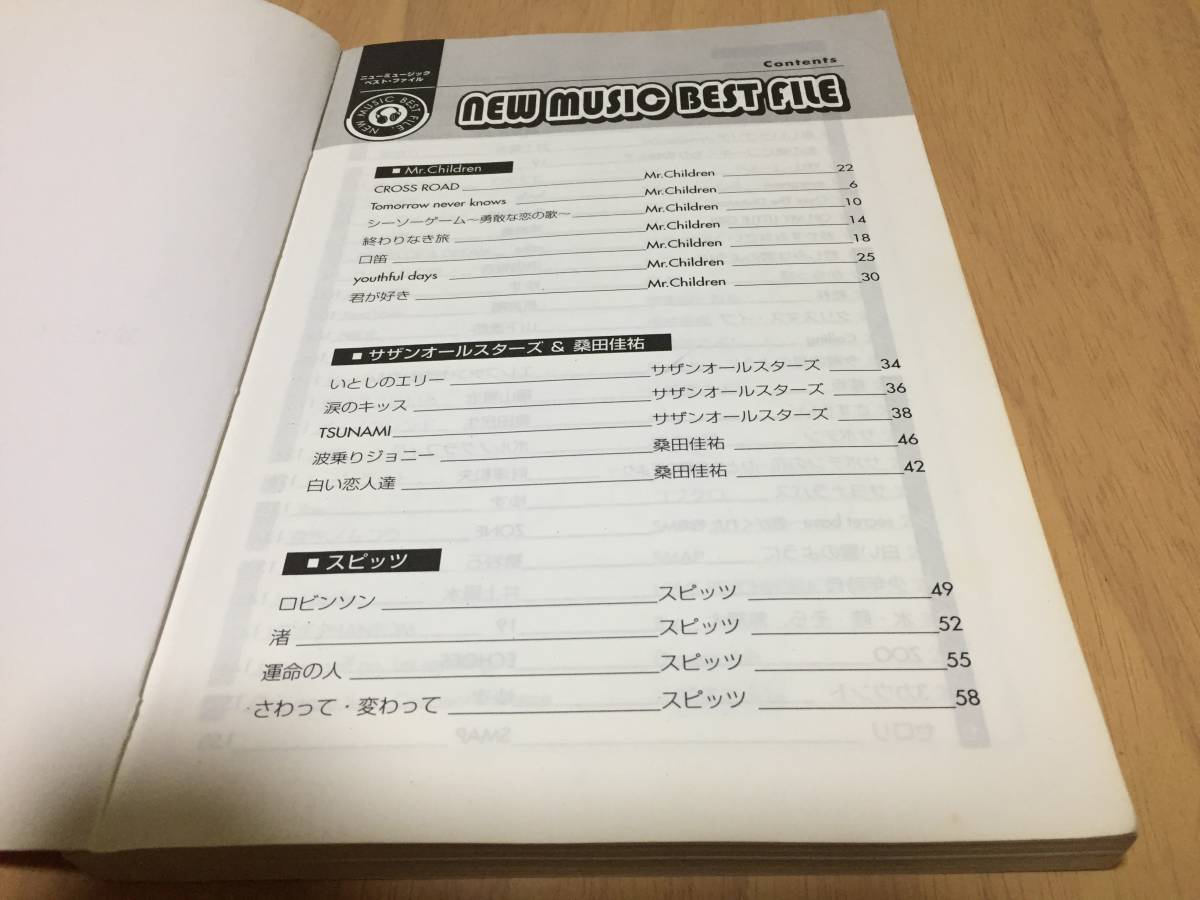 ニューミュージック
ベスト・ファイル
NEW MUSIC BEST FILE
Contents
NEW MUSIC BEST FILE
■ Mr.Children
CROSS ROAD Mr.Children 22
Tomorrow never knows Mr.Children 6
シーソーゲーム〜勇敢な恋の歌〜 Mr.Children 10
終わりなき旅 Mr.Children 14
口笛 Mr.Children 18
youthful days Mr.Children 25
君が好き Mr.Children 30
■ サザンオールスターズ & 桑田佳祐
いとしのエリー サザンオールスターズ 34
涙のキッス サザンオールスターズ 36
TSUNAMI サザンオールスターズ 38
波乗りジョニー 桑田佳祐 46
白い恋人達 桑田佳祐 42
■ スピッツ
ロビンソン スピッツ 49
渚 スピッツ 52
運命の人 スピッツ 55
さわって・変わって スピッツ 58